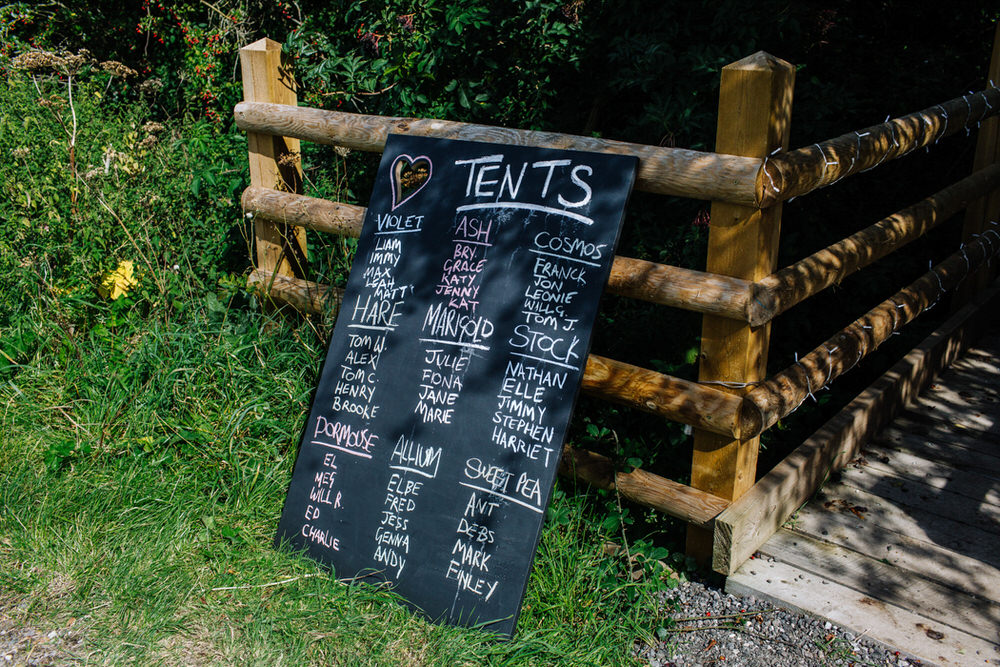 TENTS
VIOLET
LIAM
IMMY
MAX
LEAH
MATT
HARE
TOM W.
ALEX
TOM C.
HENRY
BROOKE
DORMOUSE
EL
MEG
WILL R.
ED
CHARLIE
ASH
BRY
GRACE
KATY
JENNY
KAT
MARIGOLD
JULIE
FIONA
JANE
MARIE
ALLIUM
ELBE
FRED
JESS
GENNA
ANDY
COSMOS
FRANCK
JON
LEONIE
WILL G.
TOM J.
STOCK
NATHAN
ELLE
JIMMY
STEPHEN
HARRIET
SWEET PEA
ANT
DEBS
MARK
FINLEY